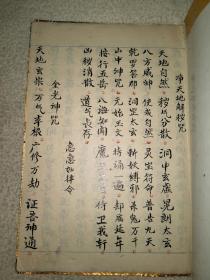 净天地解秽咒
天地自然 秽炁分散 洞中玄虚 晃朗太玄
八方威神 使我自然 灵宝符命 普告九天
乾罗答那 洞罡太玄 斩妖缚邪 杀鬼万千
山中神咒 元始玉文 持诵一遍 却病延年
按行五岳 八海知闻 魔王束首 侍卫我轩
凶秽消散 道气长存
急急如律令
金光神咒
天地玄宗 万炁本根 广修万劫 证吾神通